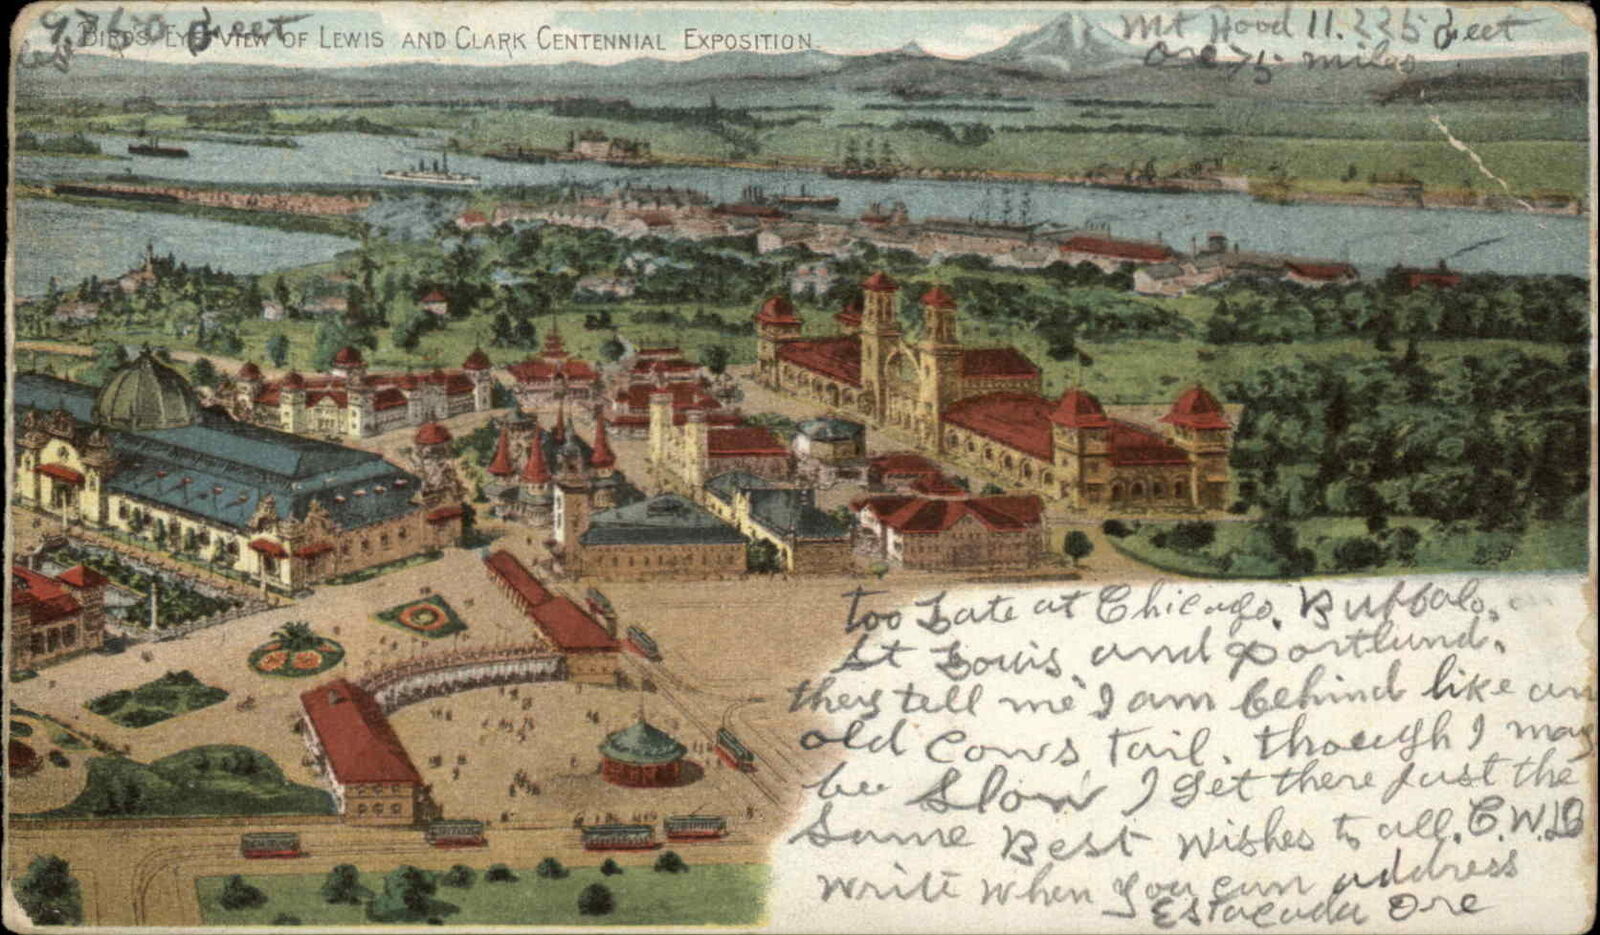 9,760 feet
BIRD'S EYE VIEW OF LEWIS AND CLARK CENTENNIAL EXPOSITION
Mt Hood 11.225 feet
Ore 75 miles
too Late at Chicago. Buffalo.
St Louis and Portlund.
they tell me I am behind like an
old Cows tail. though I may
be Slow I get there Just the
Same Best wishes to all. C.W.B
write when you can address
Estacada Ore